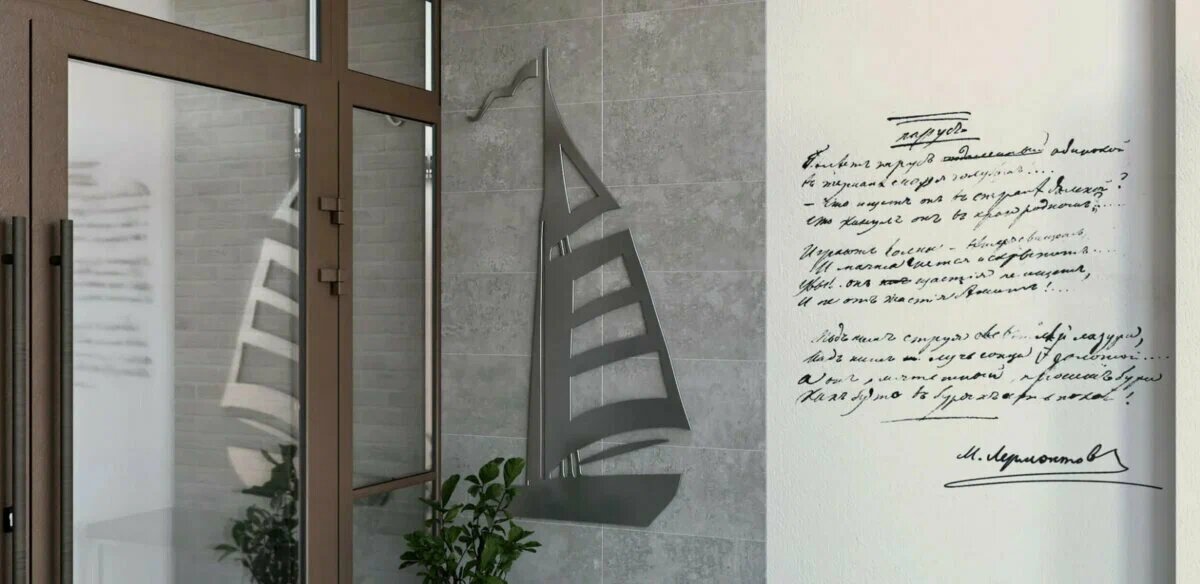 парусъ.
Бѣлѣетъ парусъ одинокой
въ туманѣ моря голубомъ....
– Что ищетъ онъ въ странѣ далекой?
что кинулъ онъ въ краю родномъ?....
Играютъ волны – вѣтеръ свищетъ,
И мачта гнется и скрыпитъ....
Увы! онъ щастія не ищетъ,
И не отъ щастія бѣжитъ!....
Подъ нимъ струя свѣтлѣй лазури,
Надъ нимъ лучь солнца золотой....
А онъ, мятежный, проситъ бури
Какъ будто въ буряхъ есть покой!
М. Лермонтов